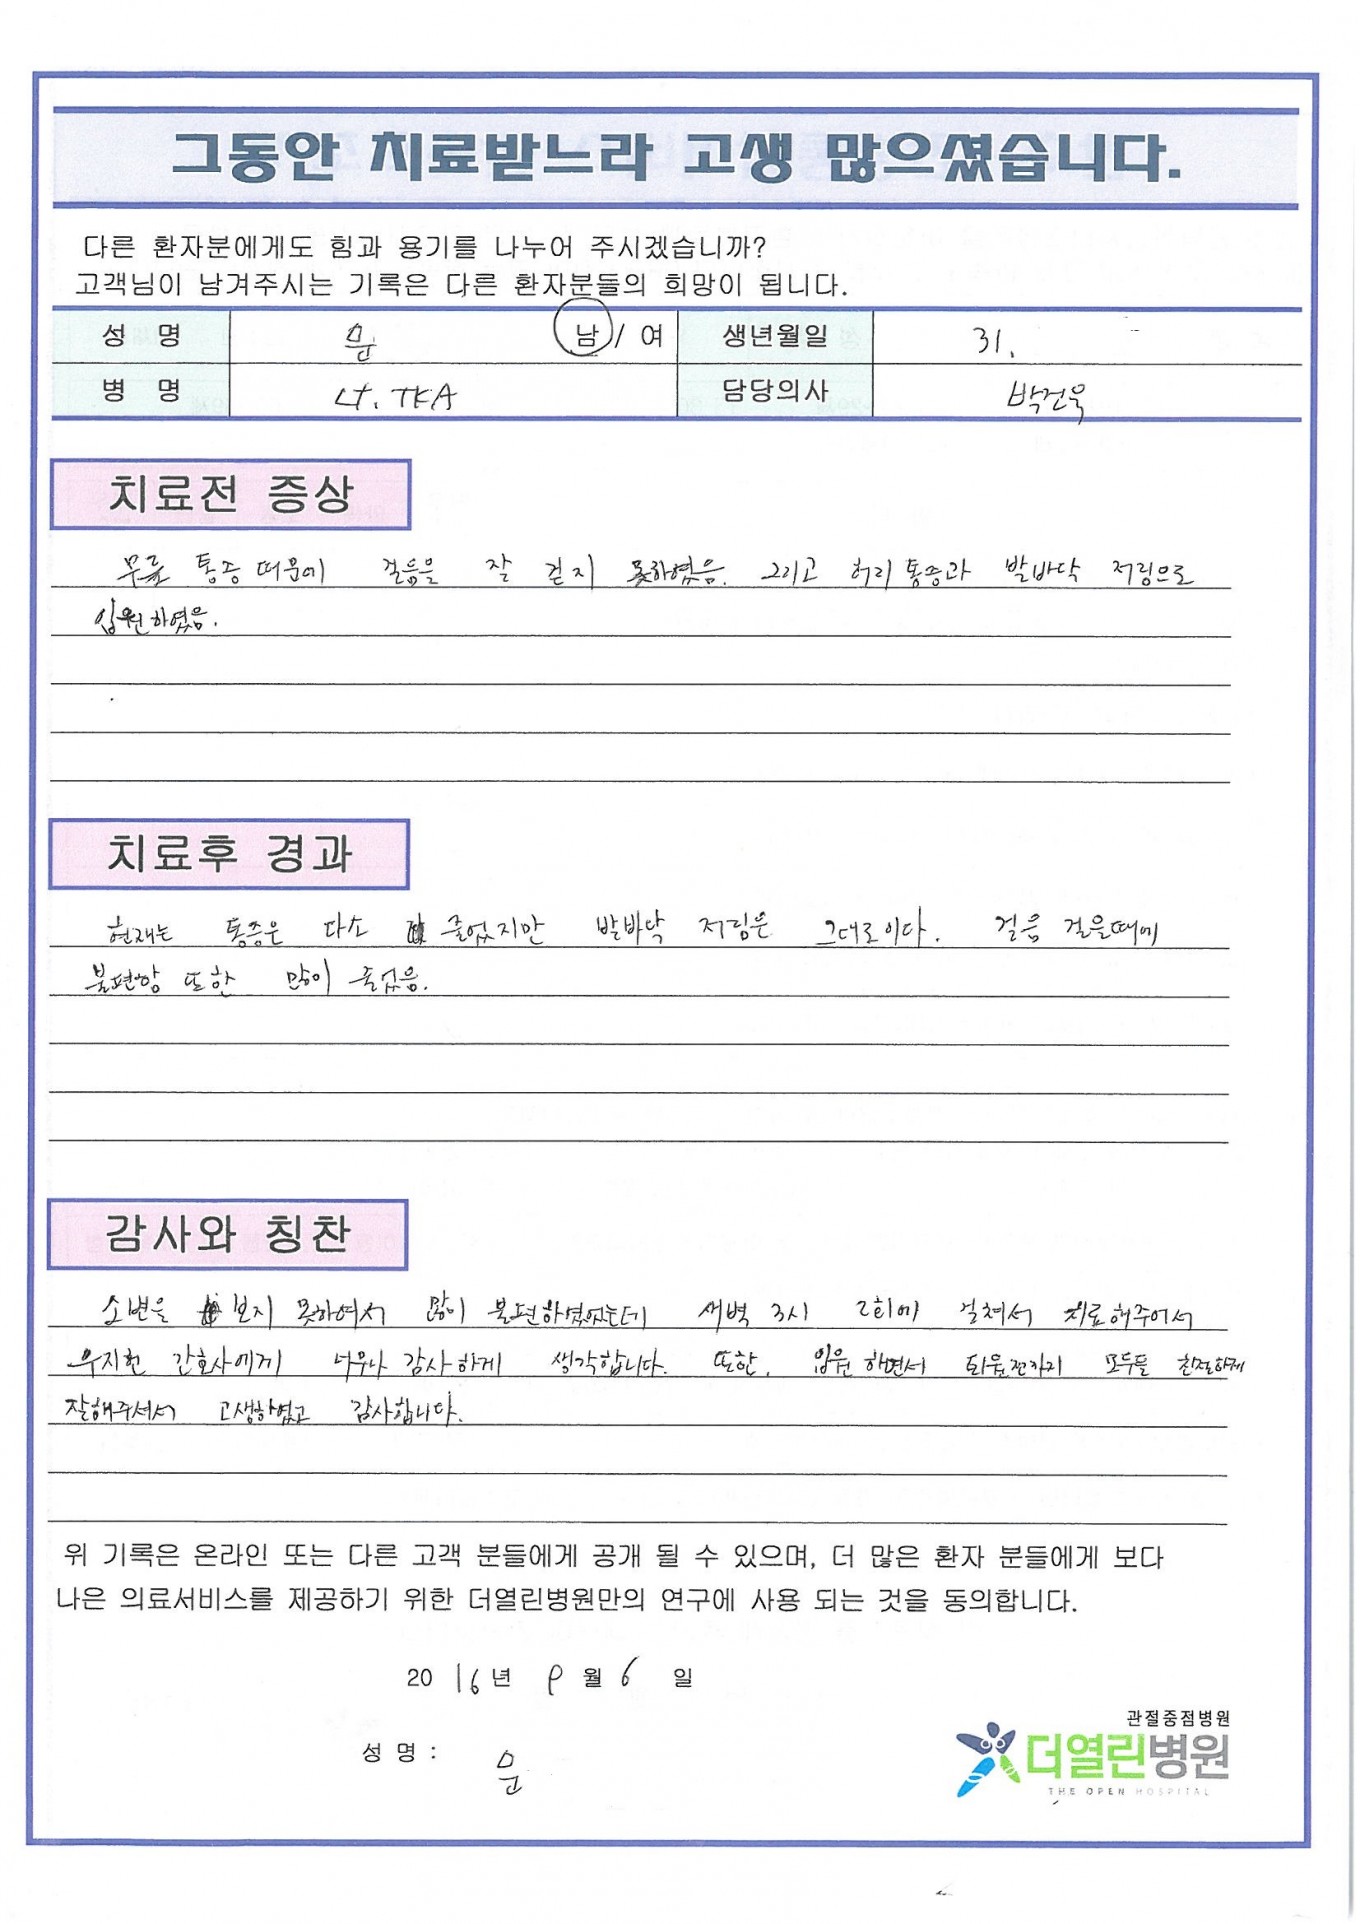 그동안 치료받느라 고생 많으셨습니다.
다른 환자분에게도 힘과 용기를 나누어 주시겠습니까?
고객님이 남겨주시는 기록은 다른 환자분들의 희망이 됩니다.
성 명 문 남 / 여 생년월일 31.
병 명 Lt. TKA 담당의사 박건욱
치료전 증상
무릎 통증 때문에 걸음을 잘 걷지 못하였음. 그리고 허리통증과 발바닥 저림으로
입원하였음.
치료후 경과
현재는 통증은 다소 줄었지만 발바닥 저림은 그대로이다. 걸음 걸을때에
불편함 또한 많이 줄었음.
감사와 칭찬
소변을 보지 못하여서 많이 불편하였었는데 새벽 3시 2회에 걸쳐서 치료해주어서
우지헌 간호사에게 너무나 감사하게 생각합니다. 또한, 입원하면서 퇴원전까지 모두들 친절하게
잘해주셔서 고생하였고 감사합니다.
위 기록은 온라인 또는 다른 고객 분들에게 공개 될 수 있으며, 더 많은 환자 분들에게 보다
나은 의료서비스를 제공하기 위한 더열린병원만의 연구에 사용 되는 것을 동의합니다.
2016년 9월 6 일
성 명 : 문
관절중점병원
더열린병원
THE OPEN HOSPITAL